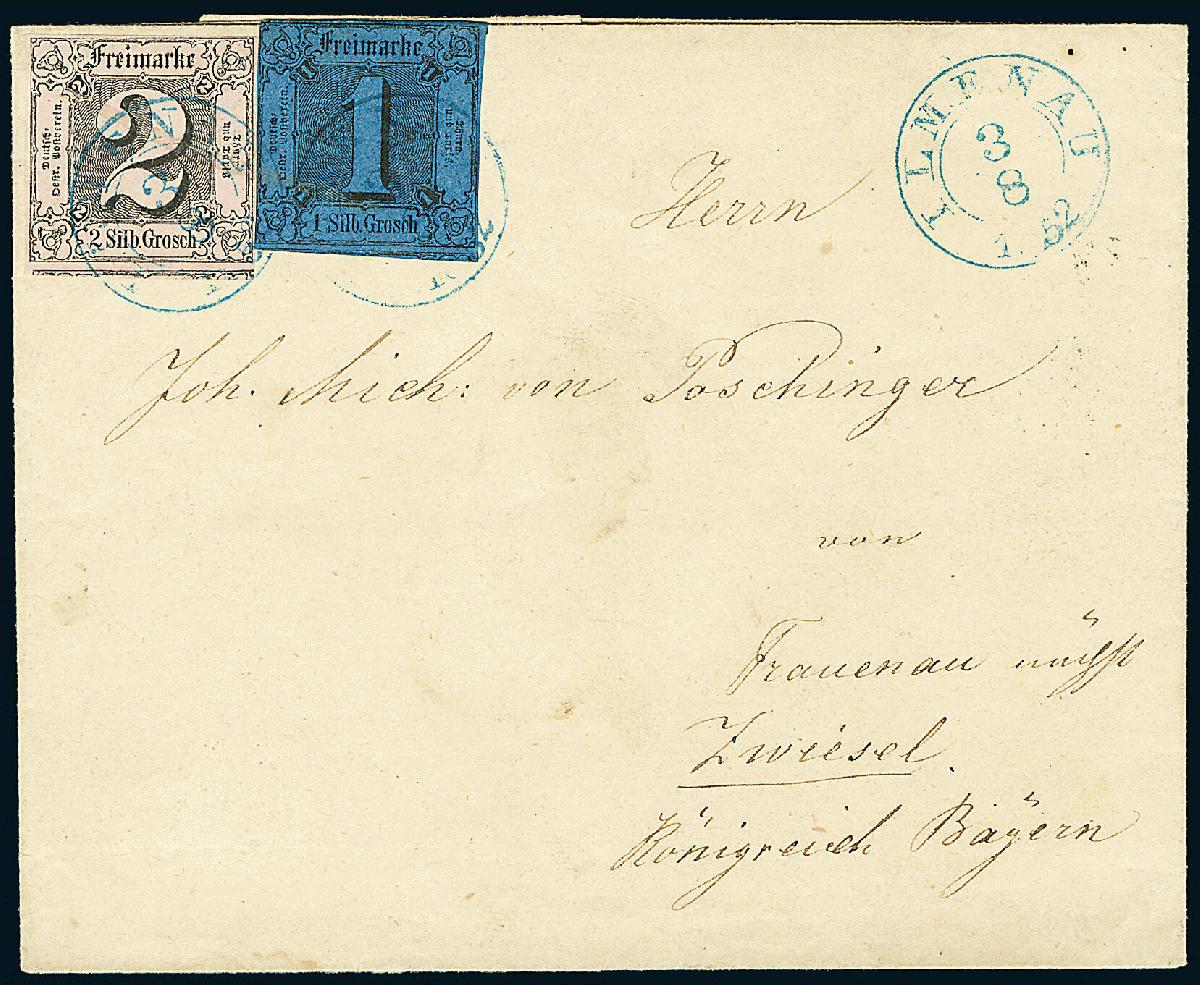 Freimarke
2
Deutsch-
Oestr. Postverein.
Thurn
und Taxis
2 Silb. Grosch
Freimarke
1
Deutsch-
Oestr. Postverein.
Thurn
und Taxis
1 Silb. Grosch
ILMENAU
3
8
1. 52
Herrn
Joh. Mich: von Poschinger
von
Frauenau nächst
Zwiesel.
Königreich Bayern